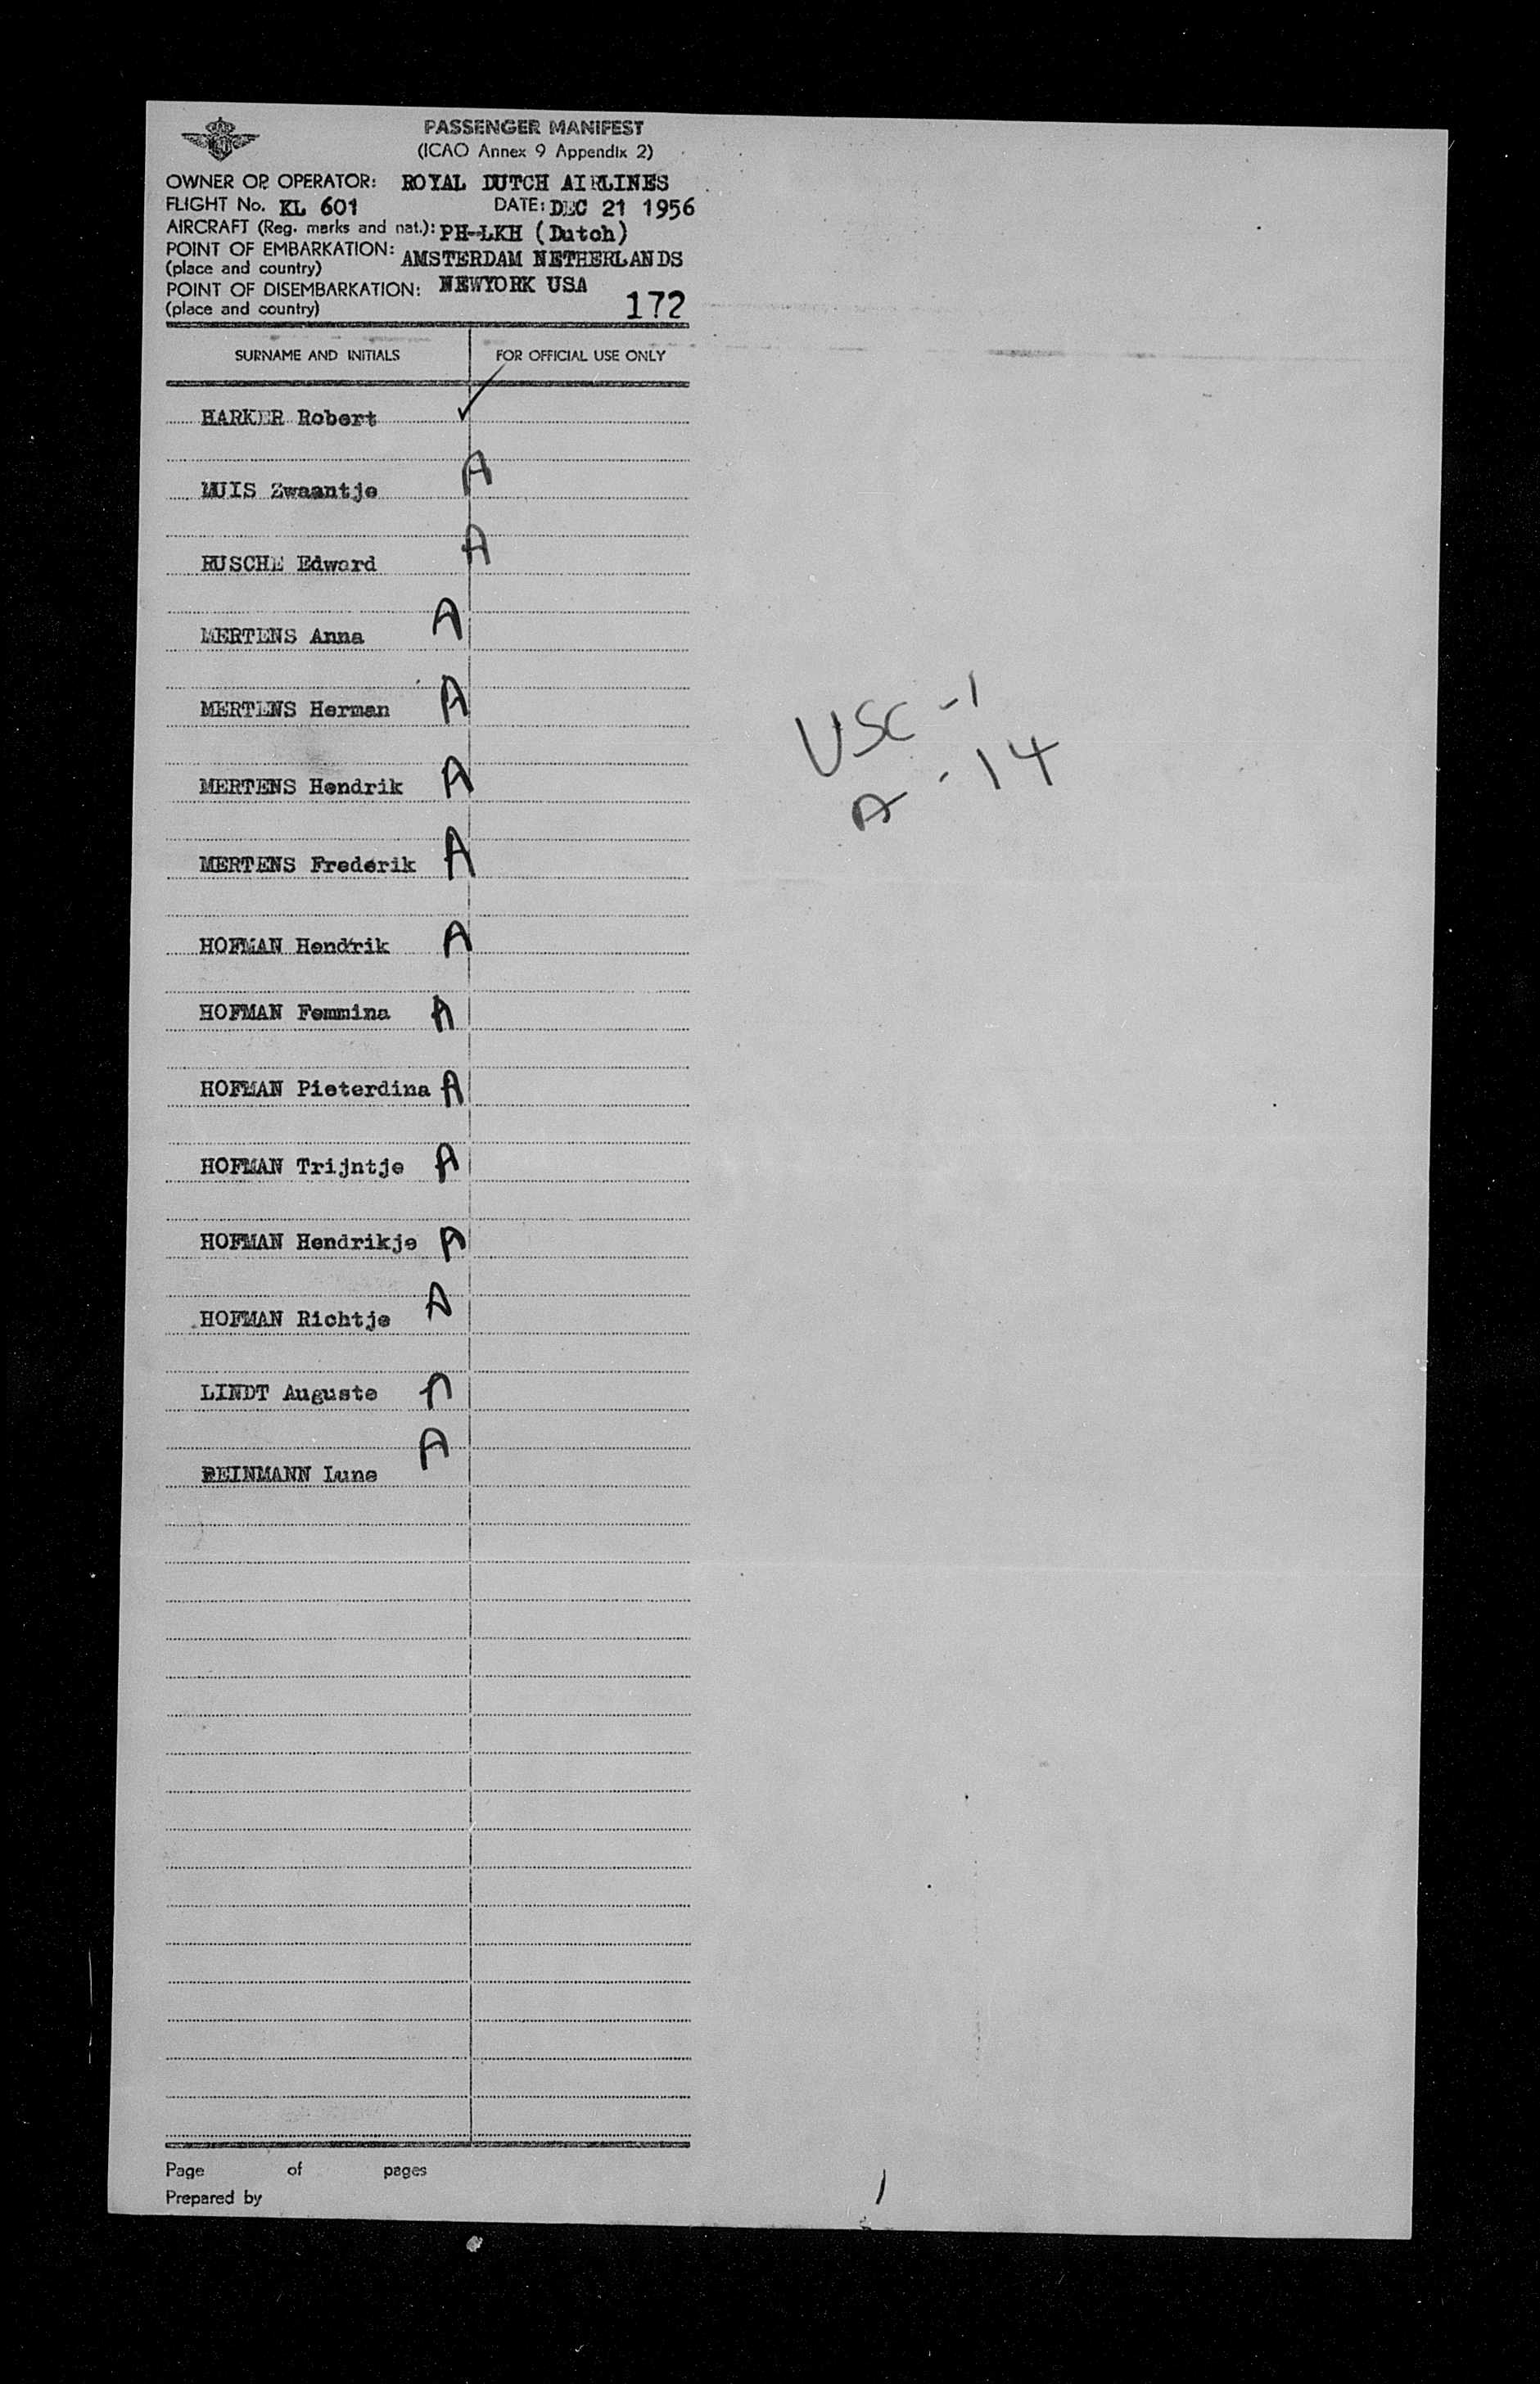 PASSENGER MANIFEST
(ICAO Annex 9 Appendix 2)
OWNER OR OPERATOR: ROYAL DUTCH AIRLINES
FLIGHT No. KL 601 DATE: DEC 21 1956
AIRCRAFT (Reg. marks and nat.): PH-LKH (Dutch)
POINT OF EMBARKATION: AMSTERDAM NETHERLANDS
(place and country)
POINT OF DISEMBARKATION: NEWYORK USA
(place and country) 172
SURNAME AND INITIALS FOR OFFICIAL USE ONLY
HARKER Robert ✓
MUIS Zwaantje A
RUSCHE Edward A
MERTENS Anna A
MERTENS Herman A
MERTENS Hendrik A
MERTENS Frederik A
HOFMAN Hendrik A
HOFMAN Femmina A
HOFMAN Pieterdina A
HOFMAN Trijntje A
HOFMAN Hendrikje A
HOFMAN Richtje A
LINDT Auguste A
REINMANN Lune A
USC -1
A - 14
Page of pages
Prepared by